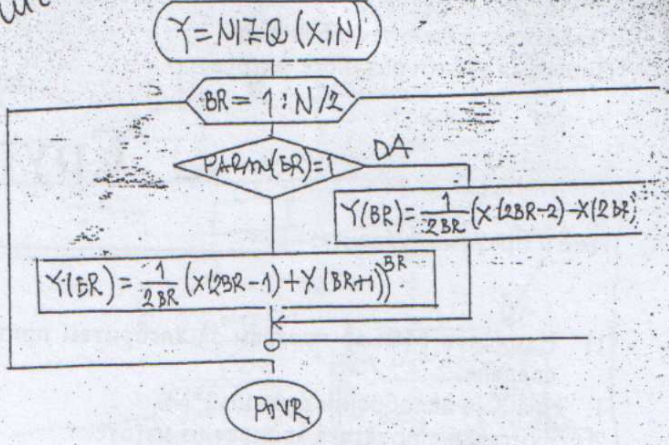 Y=NIZ@(X,N)
BR=1:N/2
PARAN(BR)=1
DA
Y(BR)=1/2BR (X(2BR-2)-X(2BR)
Y(BR)=1/2BR (X(2BR-1)+X(BR+1))^BR
POVR